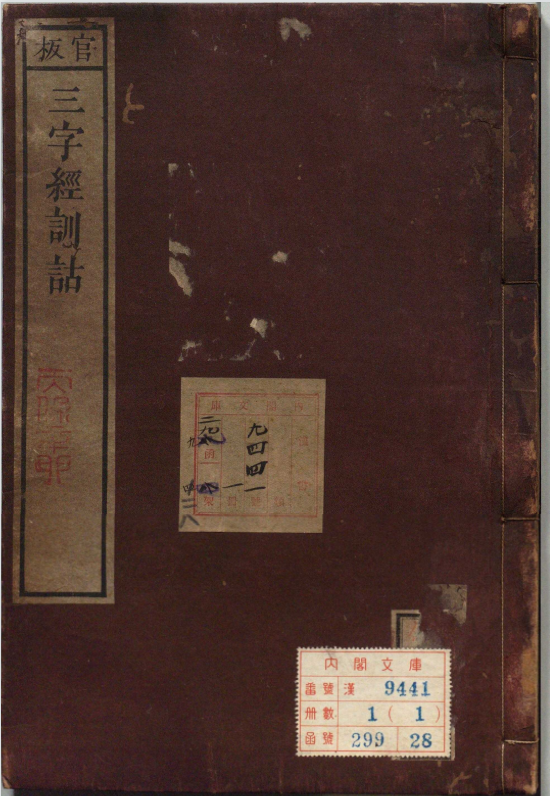 官板
三字經訓詁
九四四一
內閣文庫
番號 漢 9441
冊數 1 (1)
函號 299 28